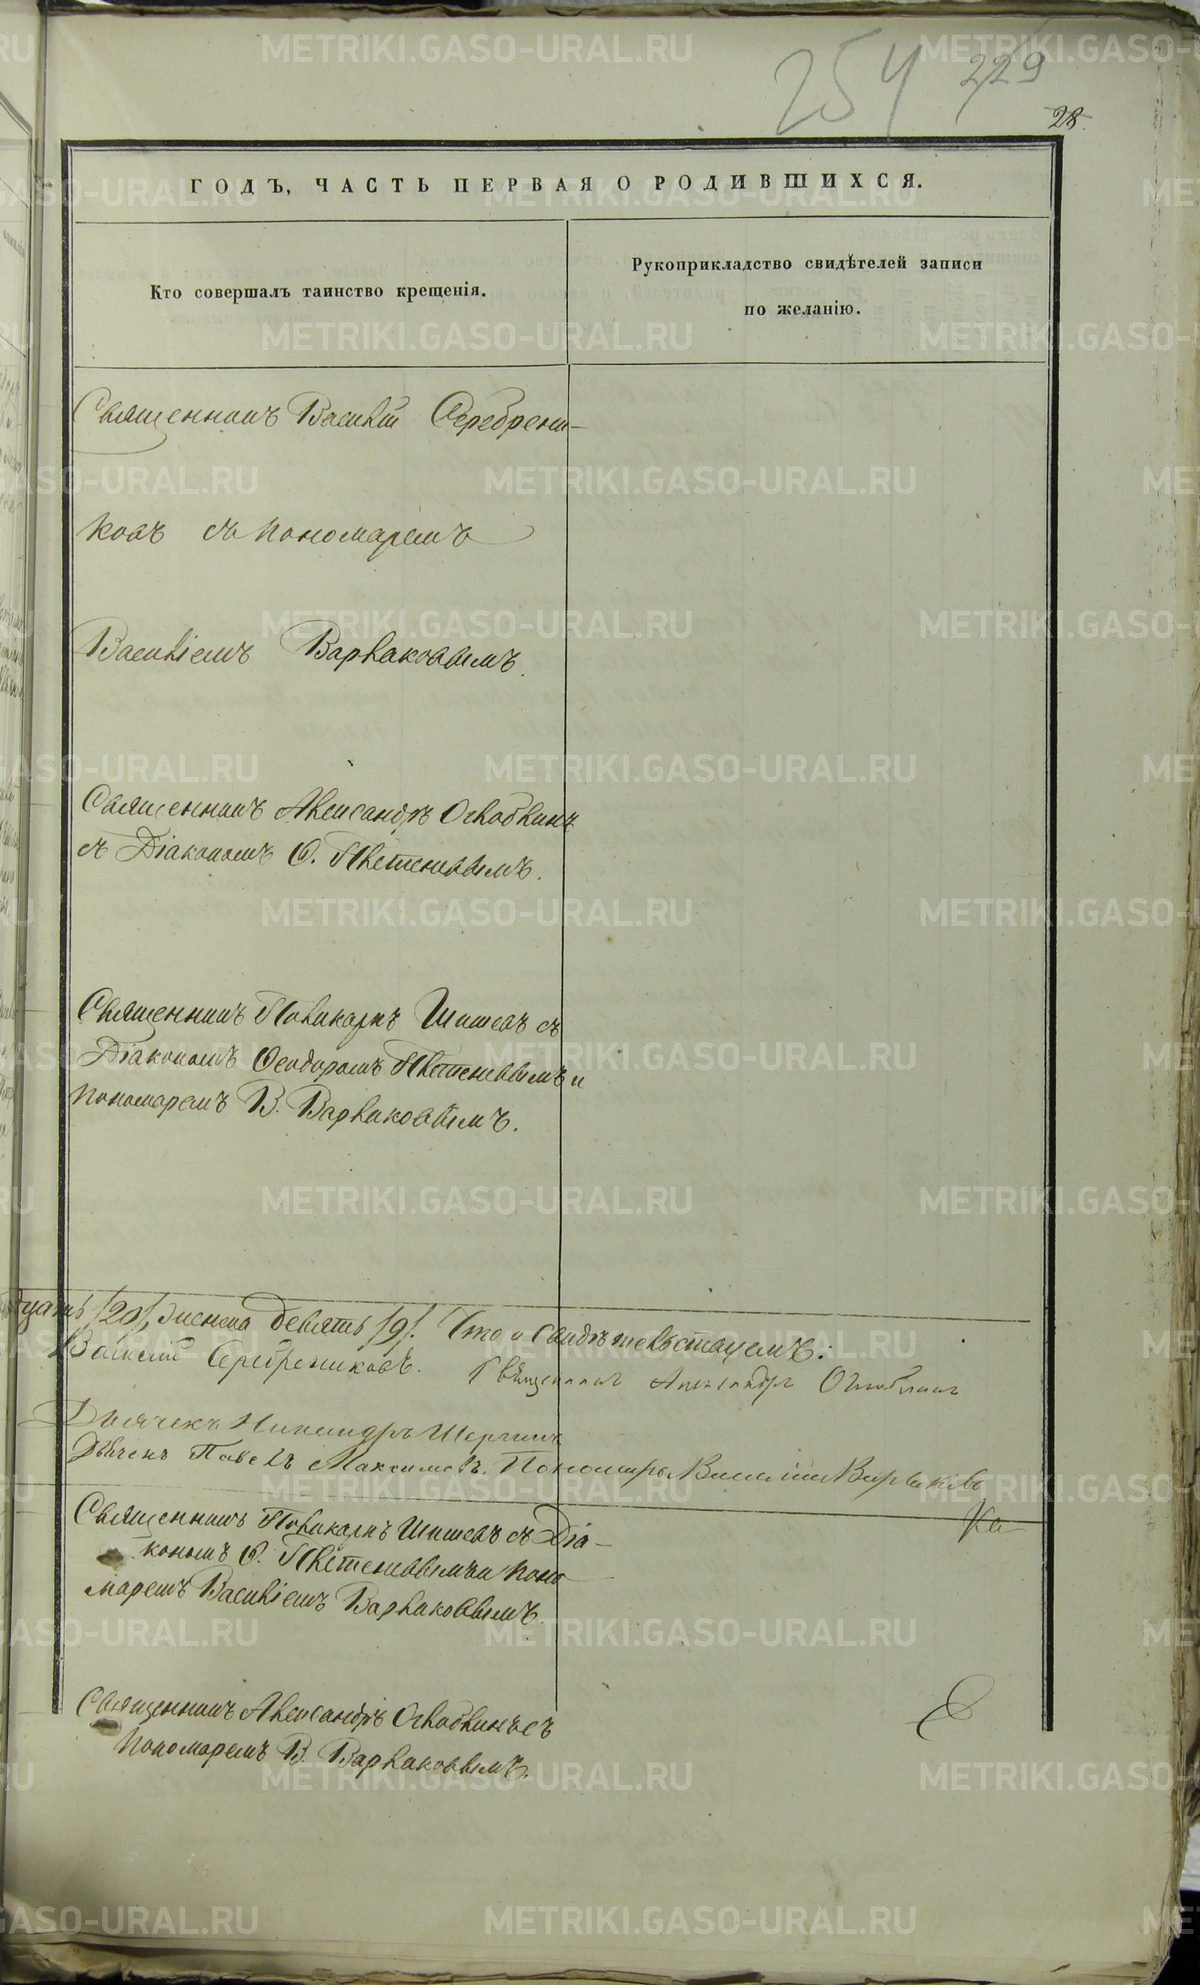 254
229
28.
ГОДЪ, ЧАСТЬ ПЕРВАЯ О РОДИВШИХСЯ.
Кто совершалъ таинство крещенія.
Рукоприкладство свидѣтелей записи
по желанію.
Священникъ Василій Серебрени-
ковъ съ Пономаремъ
Василіемъ Варлаковымъ.
Священникъ Александръ Оглоблинъ
съ Діакономъ Ѳ. Плетеневымъ.
Священникъ Поликарпъ Шишевъ съ
Діакономъ Ѳеодоромъ Плетеневымъ и
Пономаремъ В. Варлаковымъ.
/20/, женска девять /9/. Что и свидѣтельствуемъ:
Василій Серебрениковъ. Священникъ Александръ Оглоблинъ
Дьячекъ Никандръ
Дьячекъ Павелъ Максимовъ. Пономарь Василій Варлаковъ
Священникъ Поликарпъ Шишевъ съ Діа-
кономъ Ѳ. Плетеневымъ и Поно-
маремъ Василіемъ Варлаковымъ.
Священникъ Александръ Оглоблинъ съ
Пономаремъ В. Варлаковымъ.
METRIKI.GASO-URAL.RU